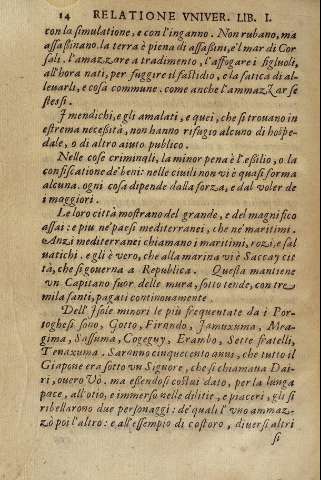 14 RELATIONE VNIVER. LIB. I.
con la simulatione, e con l'inganno. Non rubano, ma
assassinano. la terra è piena di assassini, e'l mar di Cor
sali. l'amazzare a tradimento, l'affogare i figliuoli,
all'hora nati, per fuggire il fastidio, e la fatica di al-
leuarli, e cosa commune. come anche l'ammazzar se
stessi.
I mendichi, e gli amalati, e quei, che si trouano in
estrema necessità, non hanno rifugio alcuno di hospe-
dale, o di altro aiuto publico.
Nelle cose criminali, la minor pena è l'esilio, o la
confiscatione de' beni: nelle ciuili non vi è quasi forma
alcuna. ogni cosa dipende dalla forza, e dal voler de
i maggiori.
Le loro città mostrano del grande, e del magnifico
assai: e piu ne' paesi mediterranei, che ne' maritimi.
Anzi mediterranei chiamano i maritimi, rozi, e sal
uatichi. e gli è vero, che alla marina vi è Saccay cit
tà, che si gouerna a Republica. Questa mantiene
vn Capitano fuor delle mura, sotto tende, con tre
mila fanti, pagati continouamente.
Dell'Isole minori le più frequentate da i Por-
toghesi sono, Gotto, Firando, Jamuxuma, Mea-
gima, Sassuma, Cogeguy, Erambo, Sette fratelli,
Tenaxuma. Saranno cinquecento anni, che tutto il
Giapone era sotto vn Signore, che si chiamaua Dai-
ri, ouero Vò. ma essendosi costui dato, per la lunga
pace, all'otio, e immerso nelle delitie, e piaceri, gli si
ribellarono due personaggi: de' quali l'vno ammaz-
zò poi l'altro: e, all'essempio di costoro, diuersi altri
si